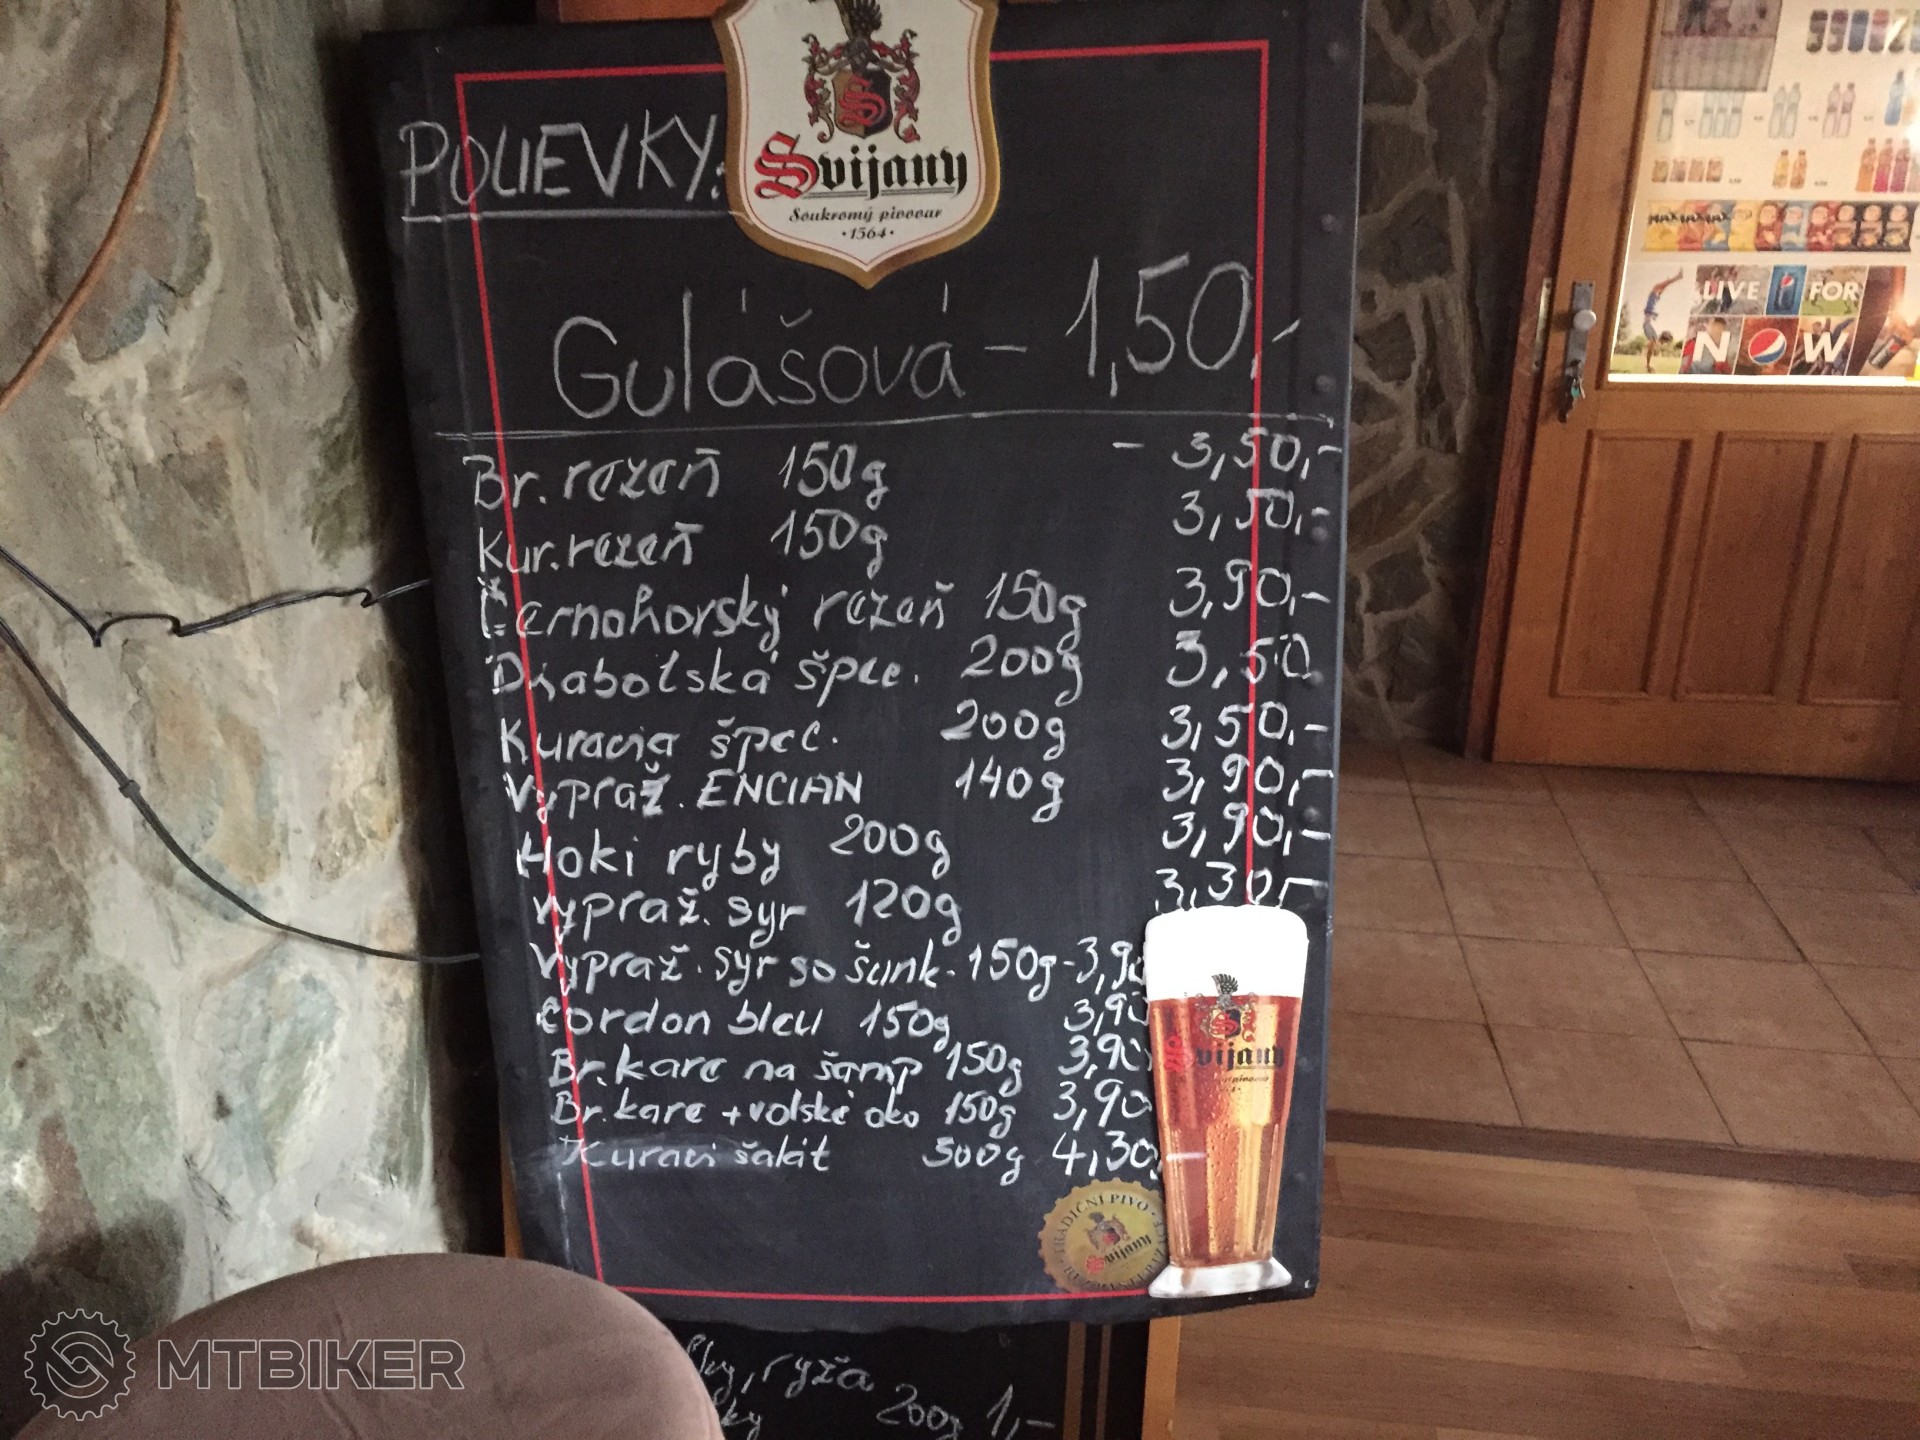 Svijany
Soukromý pivovar
·1564·
POLIEVKY:
Gulášová - 1,50,-
Br. rezeň 150g - 3,50,-
Kur. rezeň 150g 3,50,-
Černohorský rezeň 150g 3,90,-
Diabolská špec. 200g 3,50
Kuracia špec. 200g 3,50,-
Vypraž. ENCIAN 140g 3,90,-
Hoki ryby 200g 3,90,-
Vypraž. syr 120g 3,30,-
Vypraž. syr so šunk. 150g - 3,90
Cordon bleu 150g 3,90
Br. kare na šamp 150g 3,90
Br. kare + volské oko 150g 3,90
Kurací šalát 300g 4,30,-
Svijany
TRADIČNÍ PIVO
Svijany
ryža
200g 1,-
LIVE FOR
NOW
MTBIKER